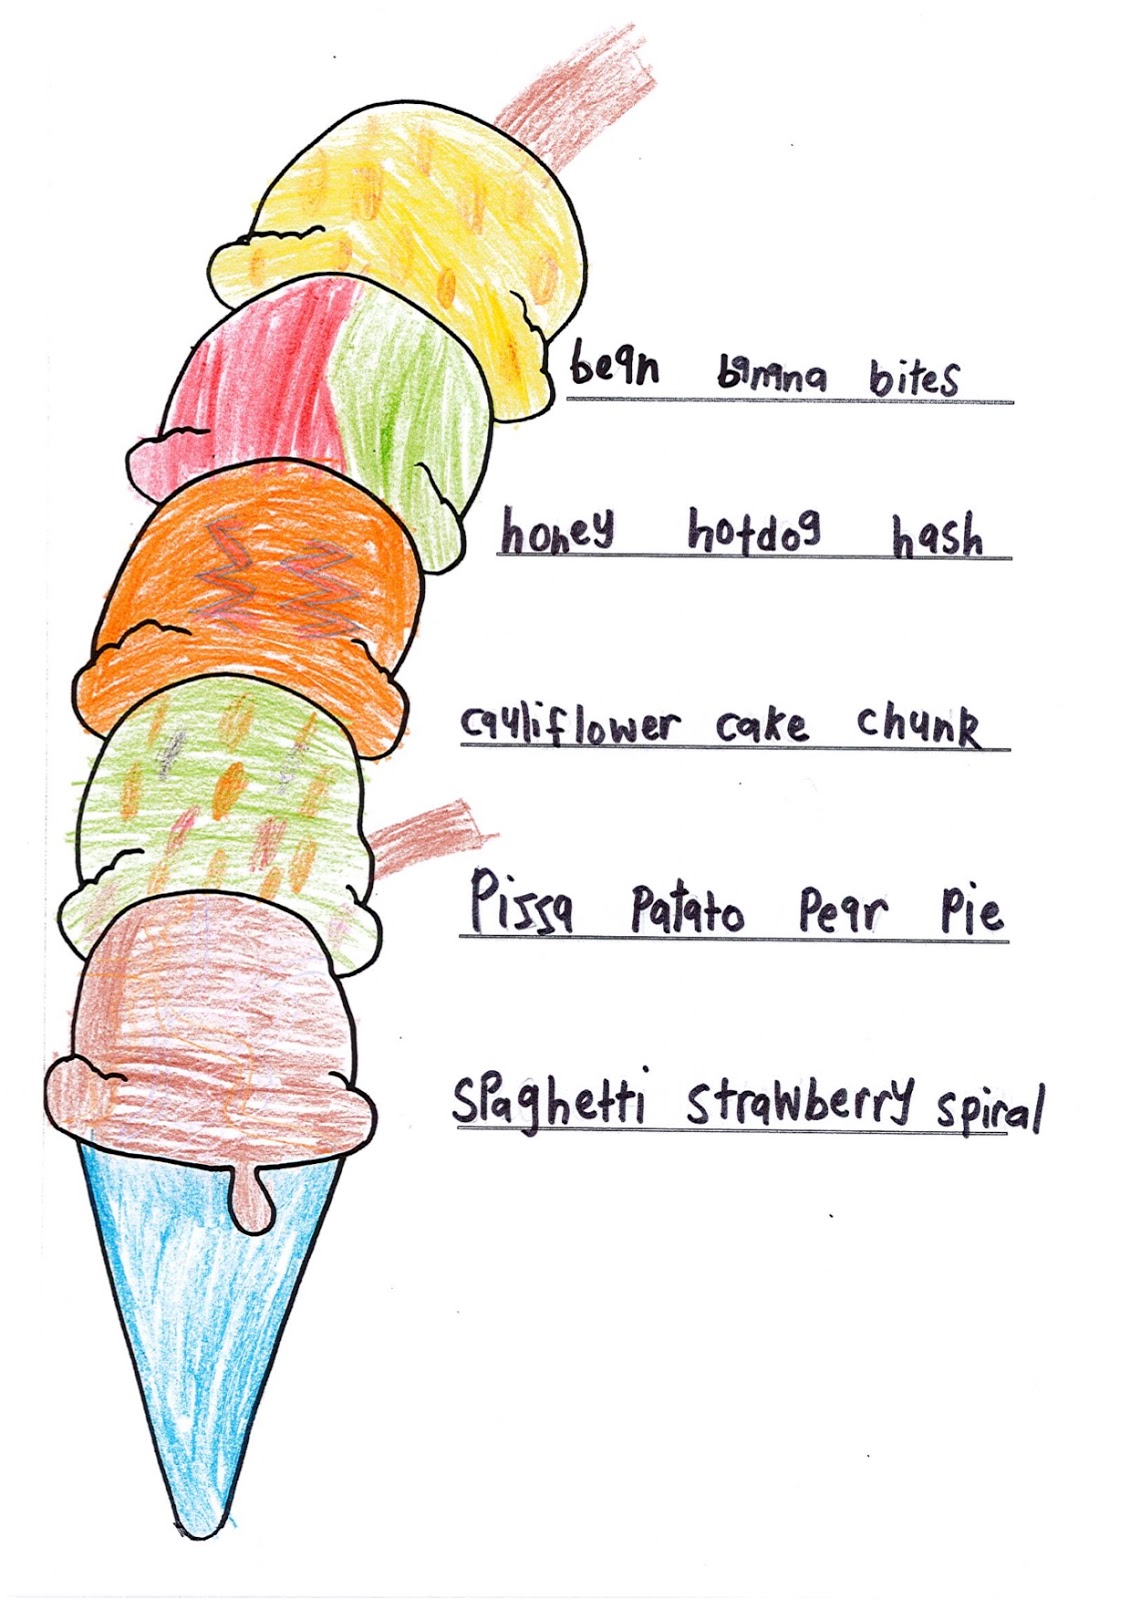 bean banana bites
honey hotdog hash
cauliflower cake chunk
Pissa Patato Pear Pie
spaghetti strawberry spiral